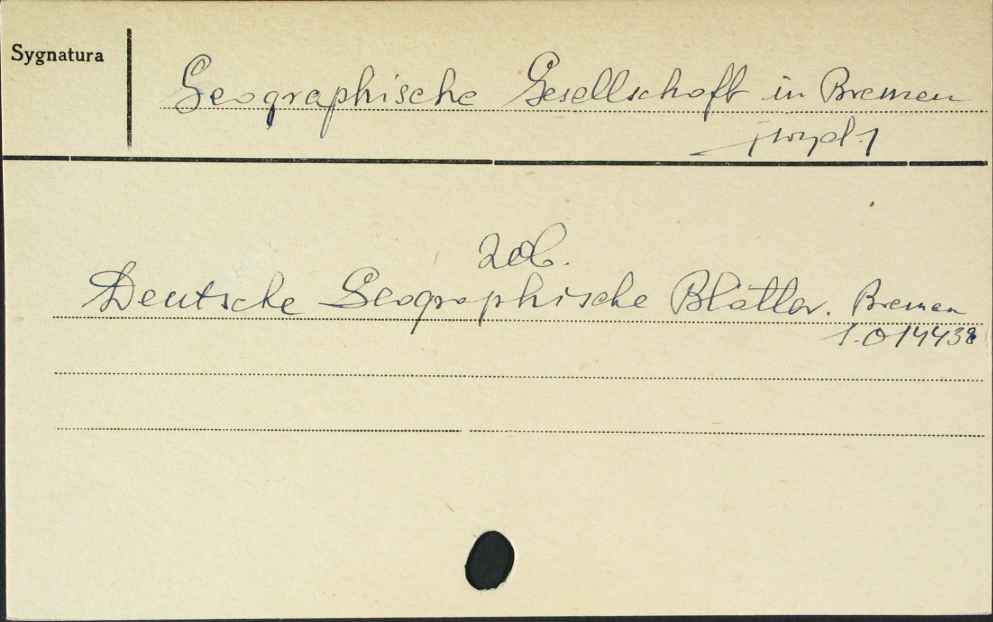 Sygnatura
Geographische Gesellschaft in Bremen
[wyd.]
zob.
Deutsche Geographische Blätter. Bremen
1.014438